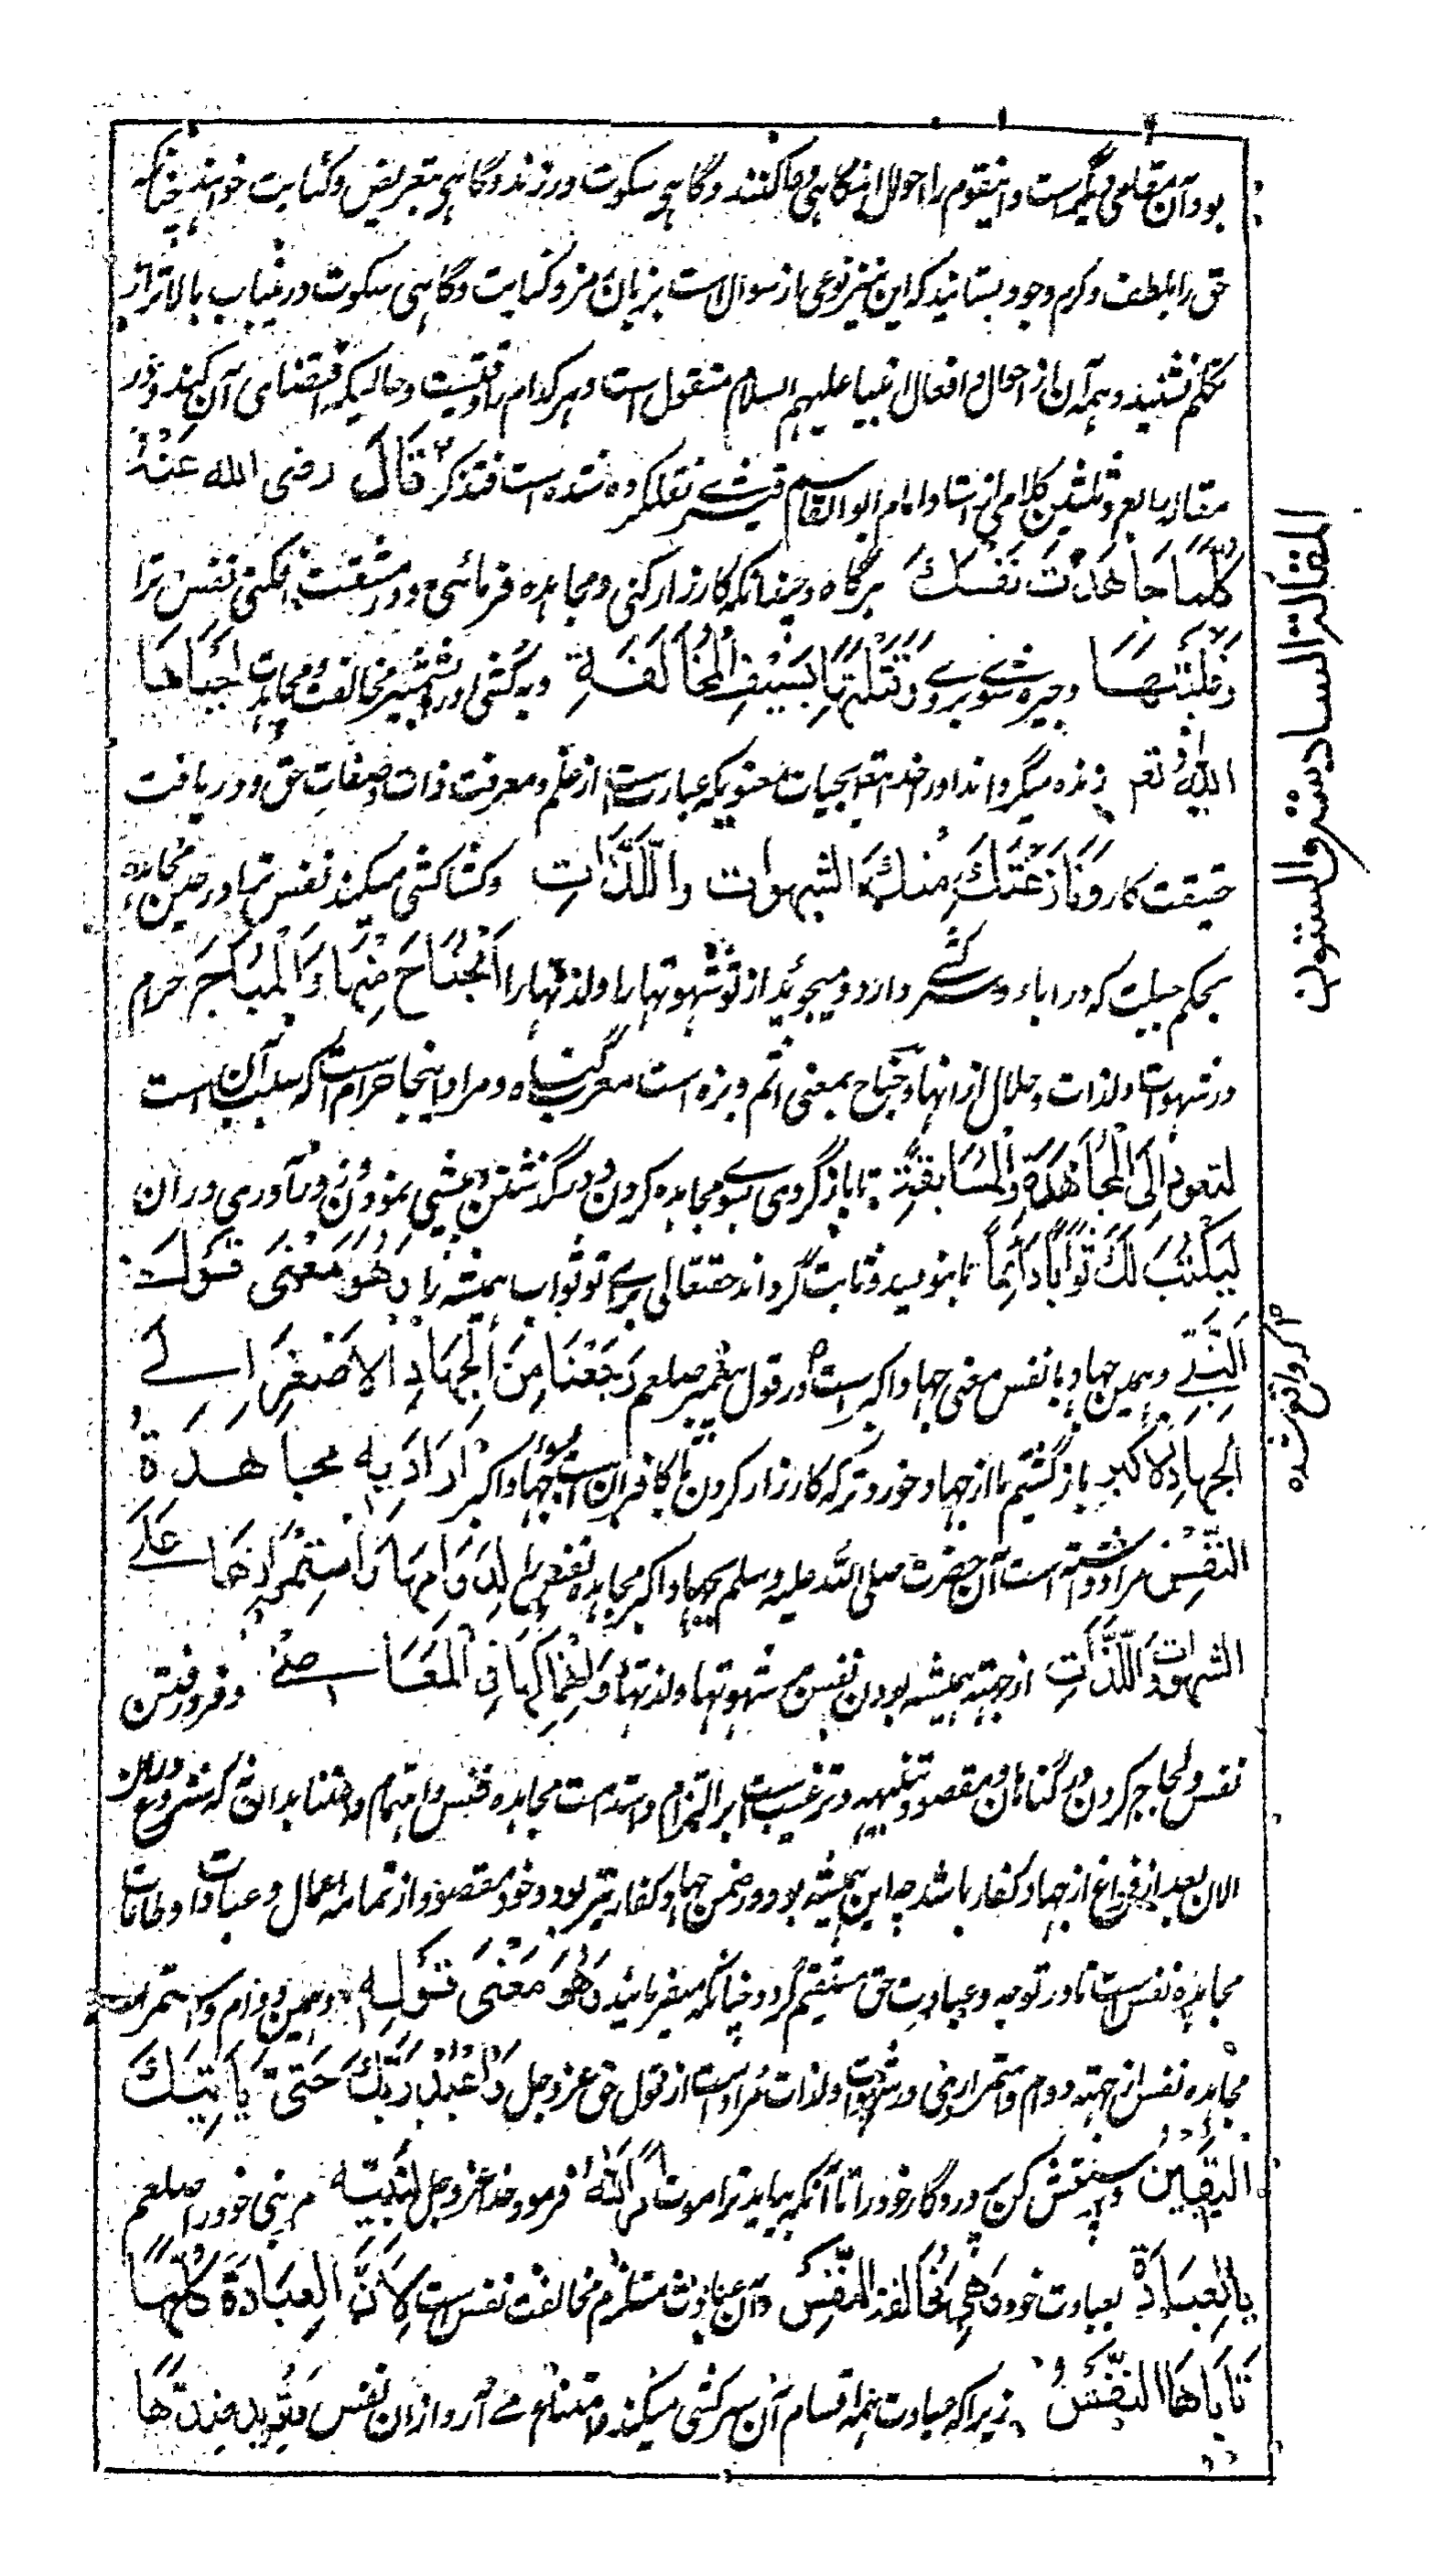 بود آن مقامی دیگر است و اینقوم را احوال است گاهی دعا کنند و گاهی سکوت ورزند و گاهی بتعریض و کنایت خواهند چنانکه
حق را بلطف و کرم وجود بستایند که این نیز نوعی از سوال است بزبان رمز و کنایت و گاهی سکوت در غیاب بالاتر از
تکلم نشنیده و همه آن از احوال و افعال انبیا علیهم السلام منقول است و هر کدام را وقتیست و حالیکه اقتضای آن کند و در
مقاله رابع و ثلثین کلامی از استاد امام ابو القاسم قشیری نقل کرده شده است فتذکر قَالَ رضی الله عَنْهُ
كُلَّمَا جَاهَدْتَ نَفْسَكَ هرگاه و چندانکه کارزار کنی و مجاهده فرمائی و در مشقت افکنی نفس ترا
وَغَلَبْتَهَا و چیره شوی بر وی وَقَتَلْتَهَا بِسَيْفِ الْمُخَالَفَةِ و بکشی او را بشمشیر مخالفت و مجاهدت اَحْيَاهَا
اللهُ تعم زنده میگرداند او را خدا تعم بحیات معنویکه عبارت است از علم و معرفت ذات و صفات حق و دریافت
حقیقت کار وَنَازَعَتْكَ مِنْكَ الشهوات واللَّذَّاتِ و کشاکشی میکند نفس ترا در حین مجاهده
بحکم جبلت که در اباء و سرکشی دارد و میجوید از تو شهوتها را و لذتها را اَلْجُنَاحَ مِنْهَا وَالْمُبَاحَ حرام
در شهوات و لذات و حلال از انها و جناح بمعنی اثم و بزه است معرب گناه و مراد اینجا حرام است که سبب آن است
لتعود اِلَى الْمُجَاهَدَةِ وَالْمُسَابَقَةِ تا بازگردی بسوی مجاهده کردن و درگذشتن و پیشی نمودن و زور آوری در آن
لِيَكْتُبَ لَكَ ثَوَابًا دَائِمًا تا بنویسد و ثابت گرداند حقتعالی برای تو ثواب همیشه را وَهُوَ مَعْنَى قَوْلِ
اَلنَّبِيِّ و همین جهاد با نفس معنی جهاد اکبر است در قول پیغمبر صلعم رَجَعْنَا مِنَ الْجِهَادِ الْاَصْغَرِ اِلَى
الْجِهَادِ الْاَكْبَرِ بازگشتیم ما از جهاد خورد ترکه کارزار کردن با کافران است بسوی جهاد اکبر اَرَادَ بِهِ مُجَاهَدَةَ
النَّفْسِ مراد داشته است آن حضرت صلی الله علیه وسلم بجهاد اکبر مجاهده نفس را لِدَوَامِهَا وَاسْتِمْرَارِهَا عَلَى
الشهوات وَاللَّذَّاتِ از جهته همیشه بودن نفس بر شهوتها و لذتها وَانْهِمَاكِهَا فِي الْمَعَاصِي و فرو رفتن
نفس و لجاج کردن در گناهان و مقصود تنبیه و ترغیب است بر التزام و استدامت مجاهده نفس و اهتمام و اعتنا بدان که شروع درین
الان بعد از فراغ از جهاد کفار باشد چه این همیشه بود و در ضمن جهاد کفار نیز بود و خود مقصود از تمامه اعمال و عبادات و طاعات
مجاهده نفس است تا در توجه و عبادت حق مستقیم گردد چنانکه میفرماید وَهُوَ مَعْنَى قَوْلِهِ و همین دوام و استمرار
مجاهده نفس از جهته دوام و استمرار وی در شهوات و لذات مراد است از قول حق عز و جل وَاعْبُدْ رَبَّكَ حَتَّى يَأْتِيَكَ
الْيَقِينُ و پرستش کن پروردگار خود را تا آنکه بیاید ترا موت اَمَرَ اللهُ فرمود خدا عز و جل لِنَبِيِّهِ مر نبی خود را صلعم
بِالْعِبَادَةِ بعبادت خود وَهِيَ مُخَالَفَةُ النَّفْسِ و آن عبادت مستلزم مخالفت نفس است لِاَنَّ الْعِبَادَةَ كُلَّهَا
تَاْبَاهَا النَّفْسُ زیرا که عبادت همه اقسام آن سرکشی میکند و امتناع می آرد از ان نفس وَتُرِيدُ ضِدَّهَا
المقالة السادسة والستون
کر واقع شده